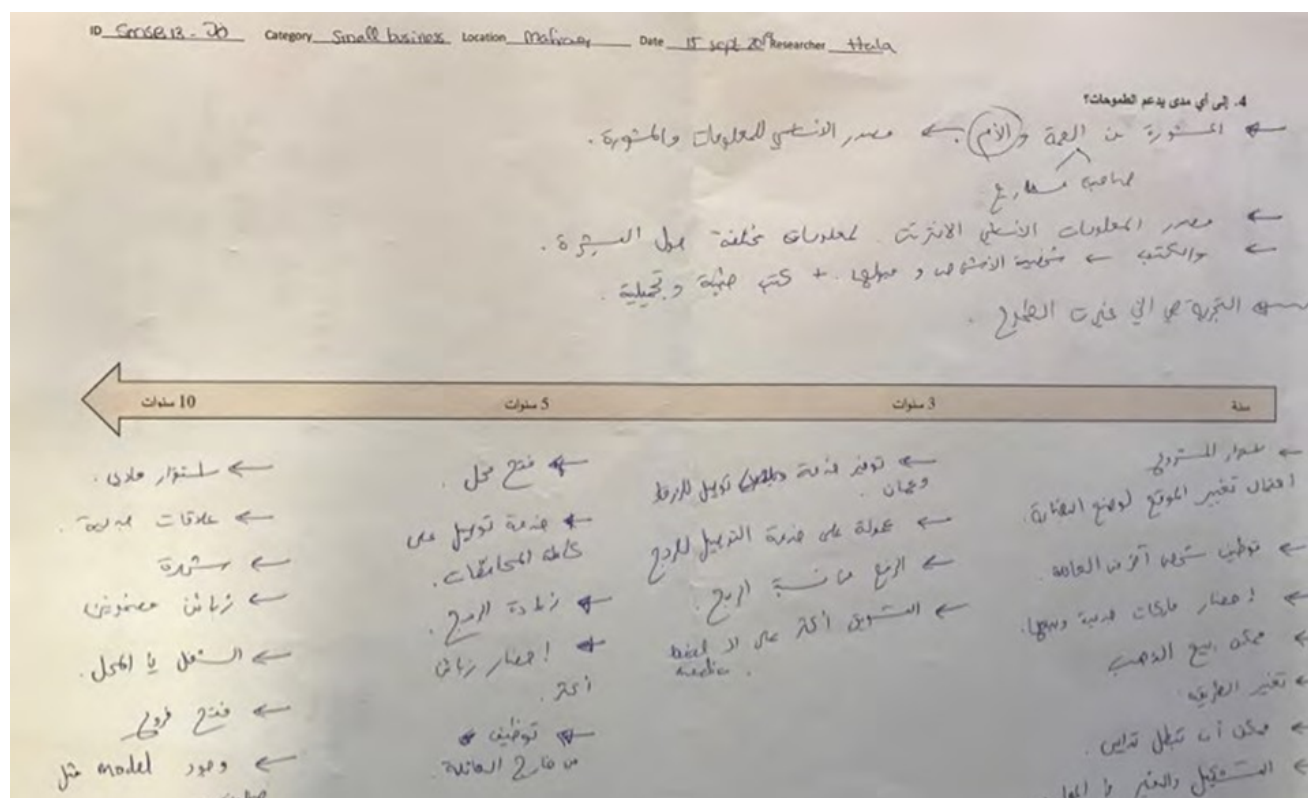 ID SmSB13-JO Category Small business Location Mafraq Date 15 sept 2019 Researcher Hala
4. إلى أي مدى يدعم الطموحات؟
← المشورة من العمة و الأم ← مصدر الأساسي للمعلومات والمشورة.
صاحبة مشاريع
← مصدر المعلومات الأساسي الانترنت. لمعلومات مختلفة حول البشرة.
← والكتب ← شخصية الأشخاص و ميولها. + كتب طبية وتجميلية.
← التجربة هي الي غيرت الطموح.
سنة
3 سنوات
5 سنوات
10 سنوات
← استمرار المشروع
احتمال تغيير الموقع لوضع البضاعة.
← توظيف شخص آخر من العائلة.
← إحضار ماركات جديدة وبيعها.
← ممكن بيع الذهب
← تغير الطريقة
← ممكن أن تبطل تداين.
← توفير خدمة توصيل للزرقا
وعمان.
← عمولة على خدمة التوصيل للربح
← الرفع من نسبة الربح.
← التسويق أكثر على ال social
media.
← فتح محل.
← خدمة توصيل على
كافة المحافظات.
← زيادة الربح.
← إحضار زبائن
أكثر.
← توظيف
من خارج العائلة.
← استقرار مادي.
← علاقات جديدة.
← شهرة
← زبائن مضمونين
← الشغل با المحل.
← فتح فروع
← وجود model مثل